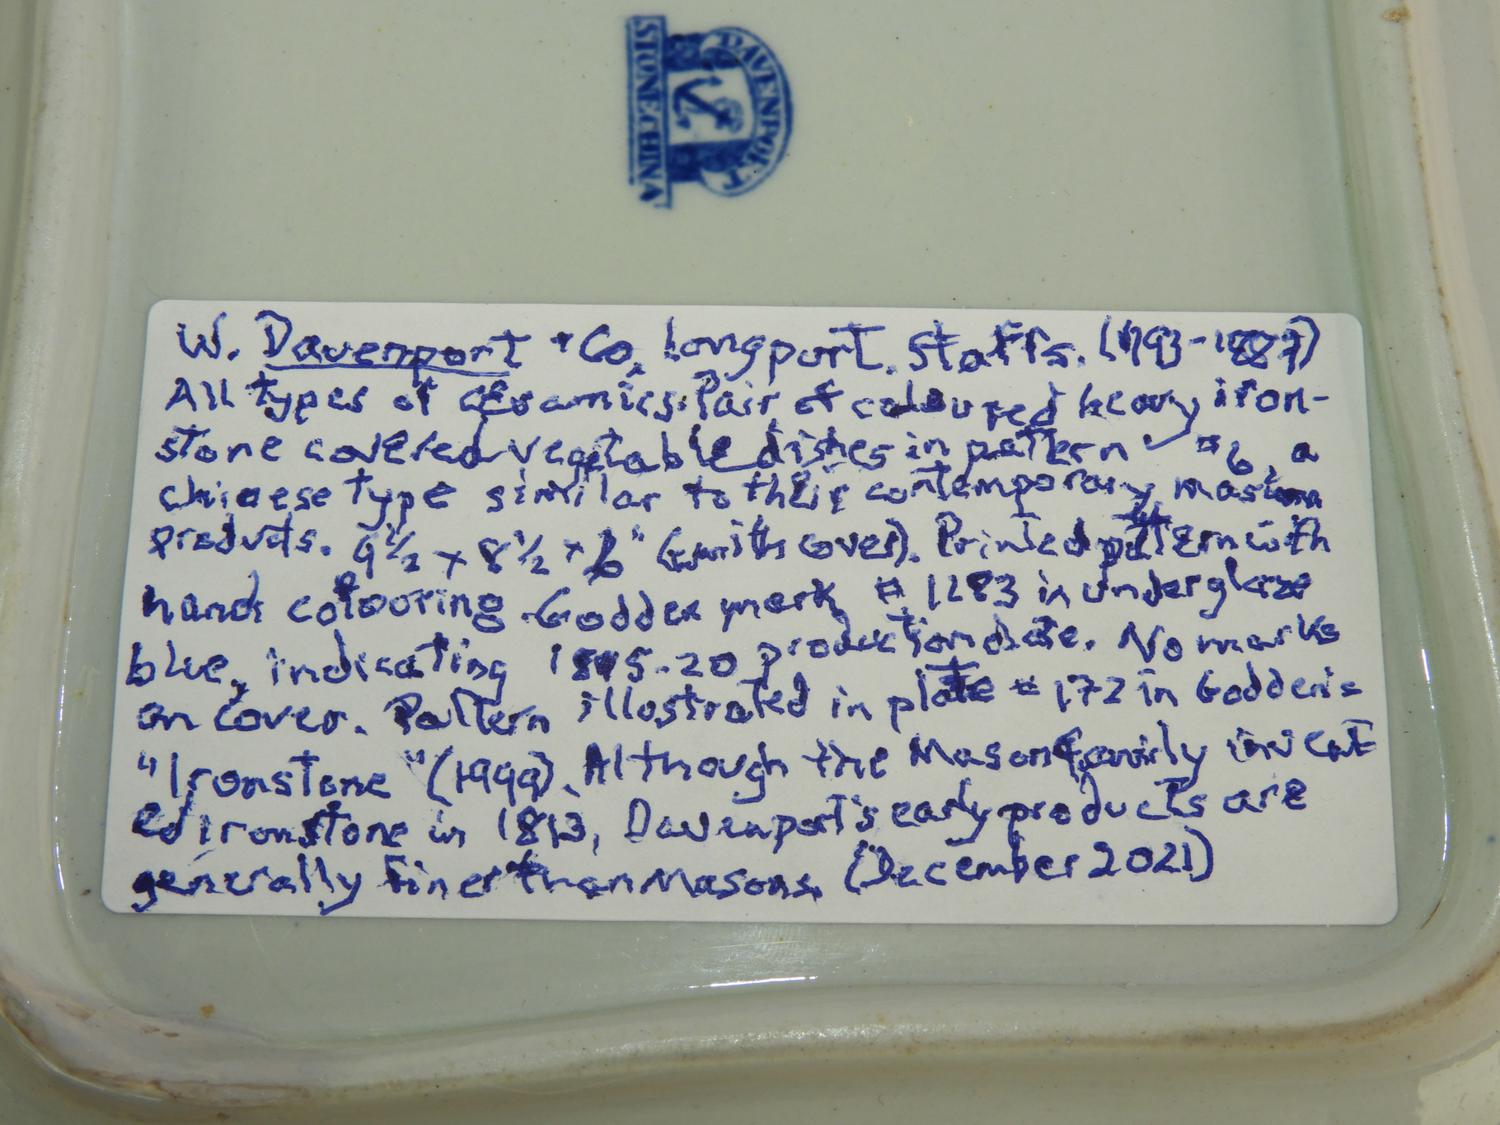 DAVENPORT
STONE CHINA
W. Davenport + Co, Longport, Staffs. (1793-1887)
All types of ceramics. Pair of coloured heavy iron-
stone covered vegetable dishes in pattern #6, a
Chinese type similar to their contemporary Mason
products. 9½ x 8½ x 6" (with cover). Printed pattern with
hand colouring. Godden mark # 1183 in underglaze
blue, indicating 1805-20 production date. No marks
on cover. Pattern illustrated in plate # 172 in Godden's
"Ironstone" (1999). Although the Mason family invent
ed ironstone in 1813, Davenport's early products are
generally finer than Masons. (December 2021)